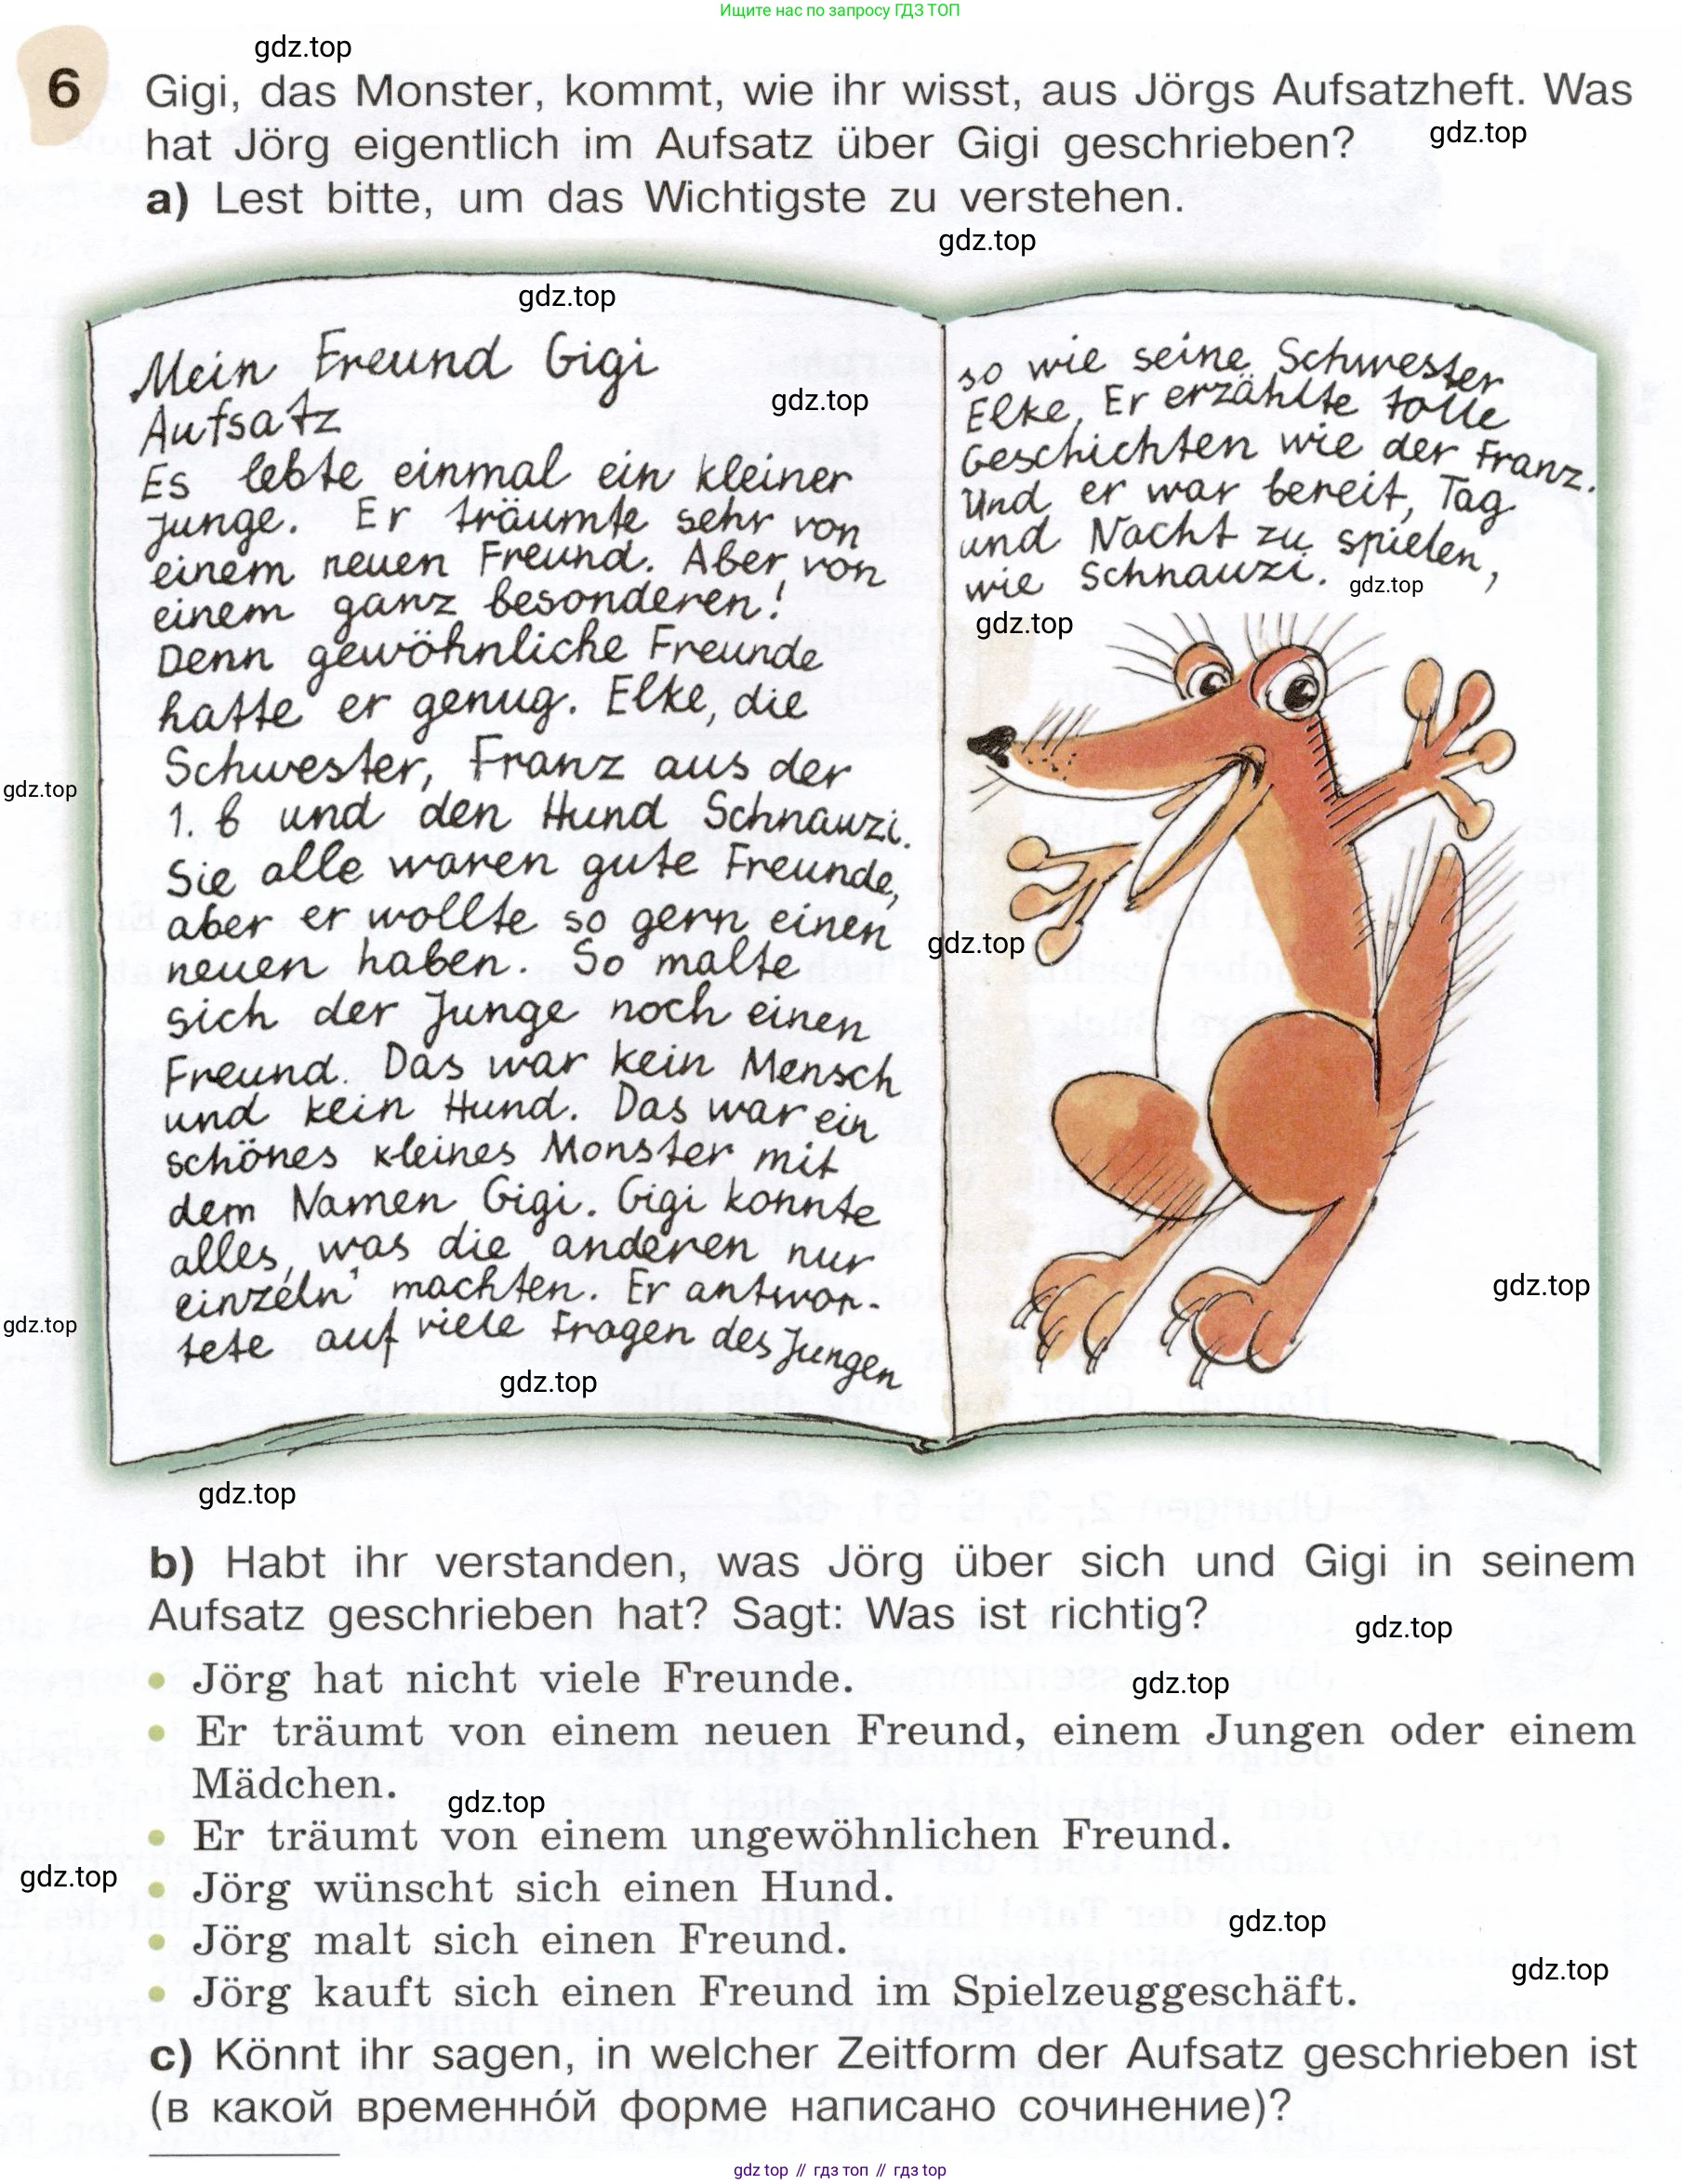 Ищите нас по запросу ГДЗ ТОП
gdz.top
6
Gigi, das Monster, kommt, wie ihr wisst, aus Jörgs Aufsatzheft. Was
hat Jörg eigentlich im Aufsatz über Gigi geschrieben?
gdz.top
a) Lest bitte, um das Wichtigste zu verstehen.
gdz.top
gdz.top
Mein Freund Gigi
gdz.top
Aufsatz
Es lebte einmal ein kleiner
Junge. Er träumte sehr von
einem neuen Freund. Aber von
einem ganz besonderen!
Denn gewöhnliche Freunde
hatte er genug. Elke, die
Schwester, Franz aus der
gdz.top
1. b und den Hund Schnauzi.
Sie alle waren gute Freunde,
aber er wollte so gern einen
neuen haben. So malte
sich der Junge noch einen
Freund. Das war kein Mensch
und kein Hund. Das war ein
schönes kleines Monster mit
dem Namen Gigi. Gigi konnte
alles, was die anderen nur
einzeln¹ machten. Er antwor-
gdz.top
tete auf viele Fragen des Jungen
gdz.top
so wie seine Schwester
Elke. Er erzählte tolle
Geschichten wie der Franz.
Und er war bereit, Tag
und Nacht zu spielen,
wie Schnauzi.
gdz.top
gdz.top
gdz.top
gdz.top
gdz.top
b) Habt ihr verstanden, was Jörg über sich und Gigi in seinem
Aufsatz geschrieben hat? Sagt: Was ist richtig?
gdz.top
• Jörg hat nicht viele Freunde.
gdz.top
• Er träumt von einem neuen Freund, einem Jungen oder einem
Mädchen.
gdz.top
• Er träumt von einem ungewöhnlichen Freund.
gdz.top
• Jörg wünscht sich einen Hund.
gdz.top
• Jörg malt sich einen Freund.
gdz.top
• Jörg kauft sich einen Freund im Spielzeuggeschäft.
c) Könnt ihr sagen, in welcher Zeitform der Aufsatz geschrieben ist
(в какой временно́й форме написано сочинение)?
gdz top // гдз топ // gdz top